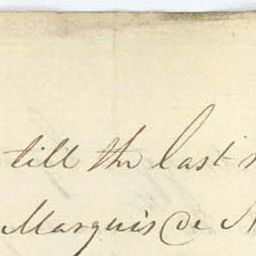 till the last
Marquis de